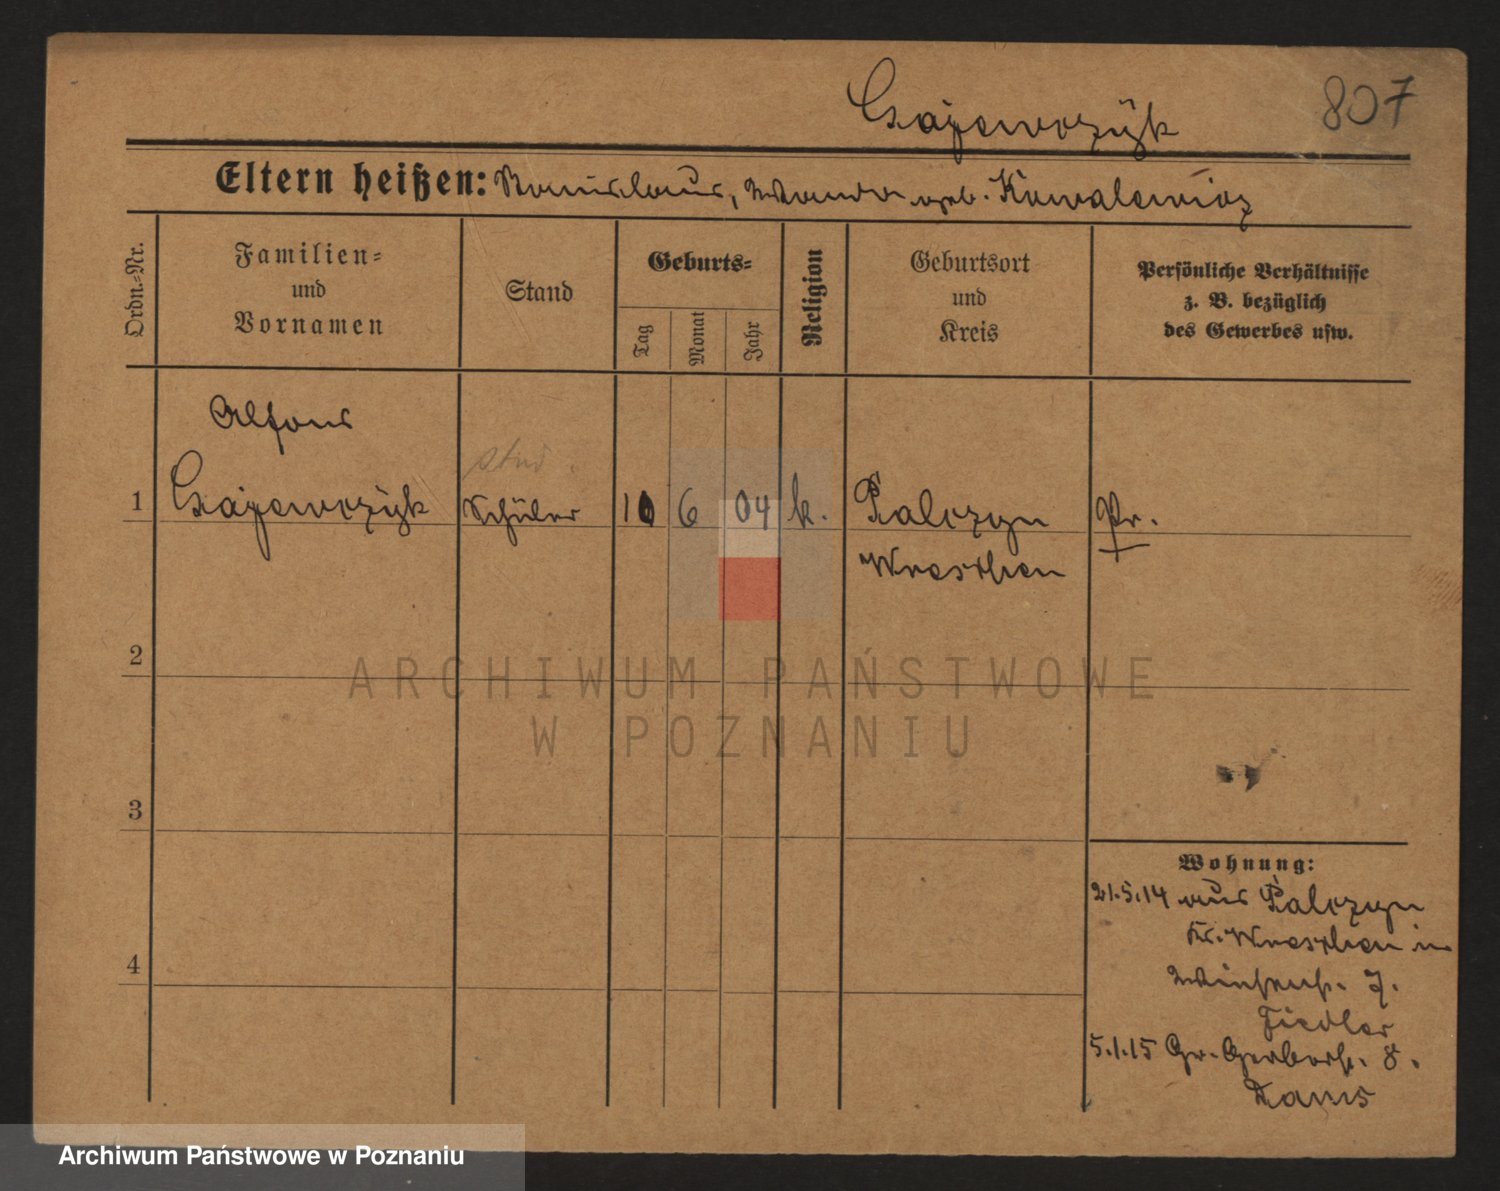 Czajewczÿk
807
Eltern heißen: Stanislaus, Wanda geb. Kowalewicz
Ordn.-Nr.
Familien-
und
Vornamen
Stand
Geburts-
Tag
Monat
Jahr
Religion
Geburtsort
und
Kreis
Persönliche Verhältnisse
z. B. bezüglich
des Gewerbes usw.
Alfons
stud
1 Czajewczÿk Schüler 10 6 04 k. Palczyn Pr.
Wreschen
2
ARCHIWUM PAŃSTWOWE
W POZNANIU
3
Wohnung:
21.5.14 aus Palczyn
Kr. Wreschen in
4
7.
Fiedler
5.1.15 Gr. Gerberstr. 8.
Archiwum Państwowe w Poznaniu